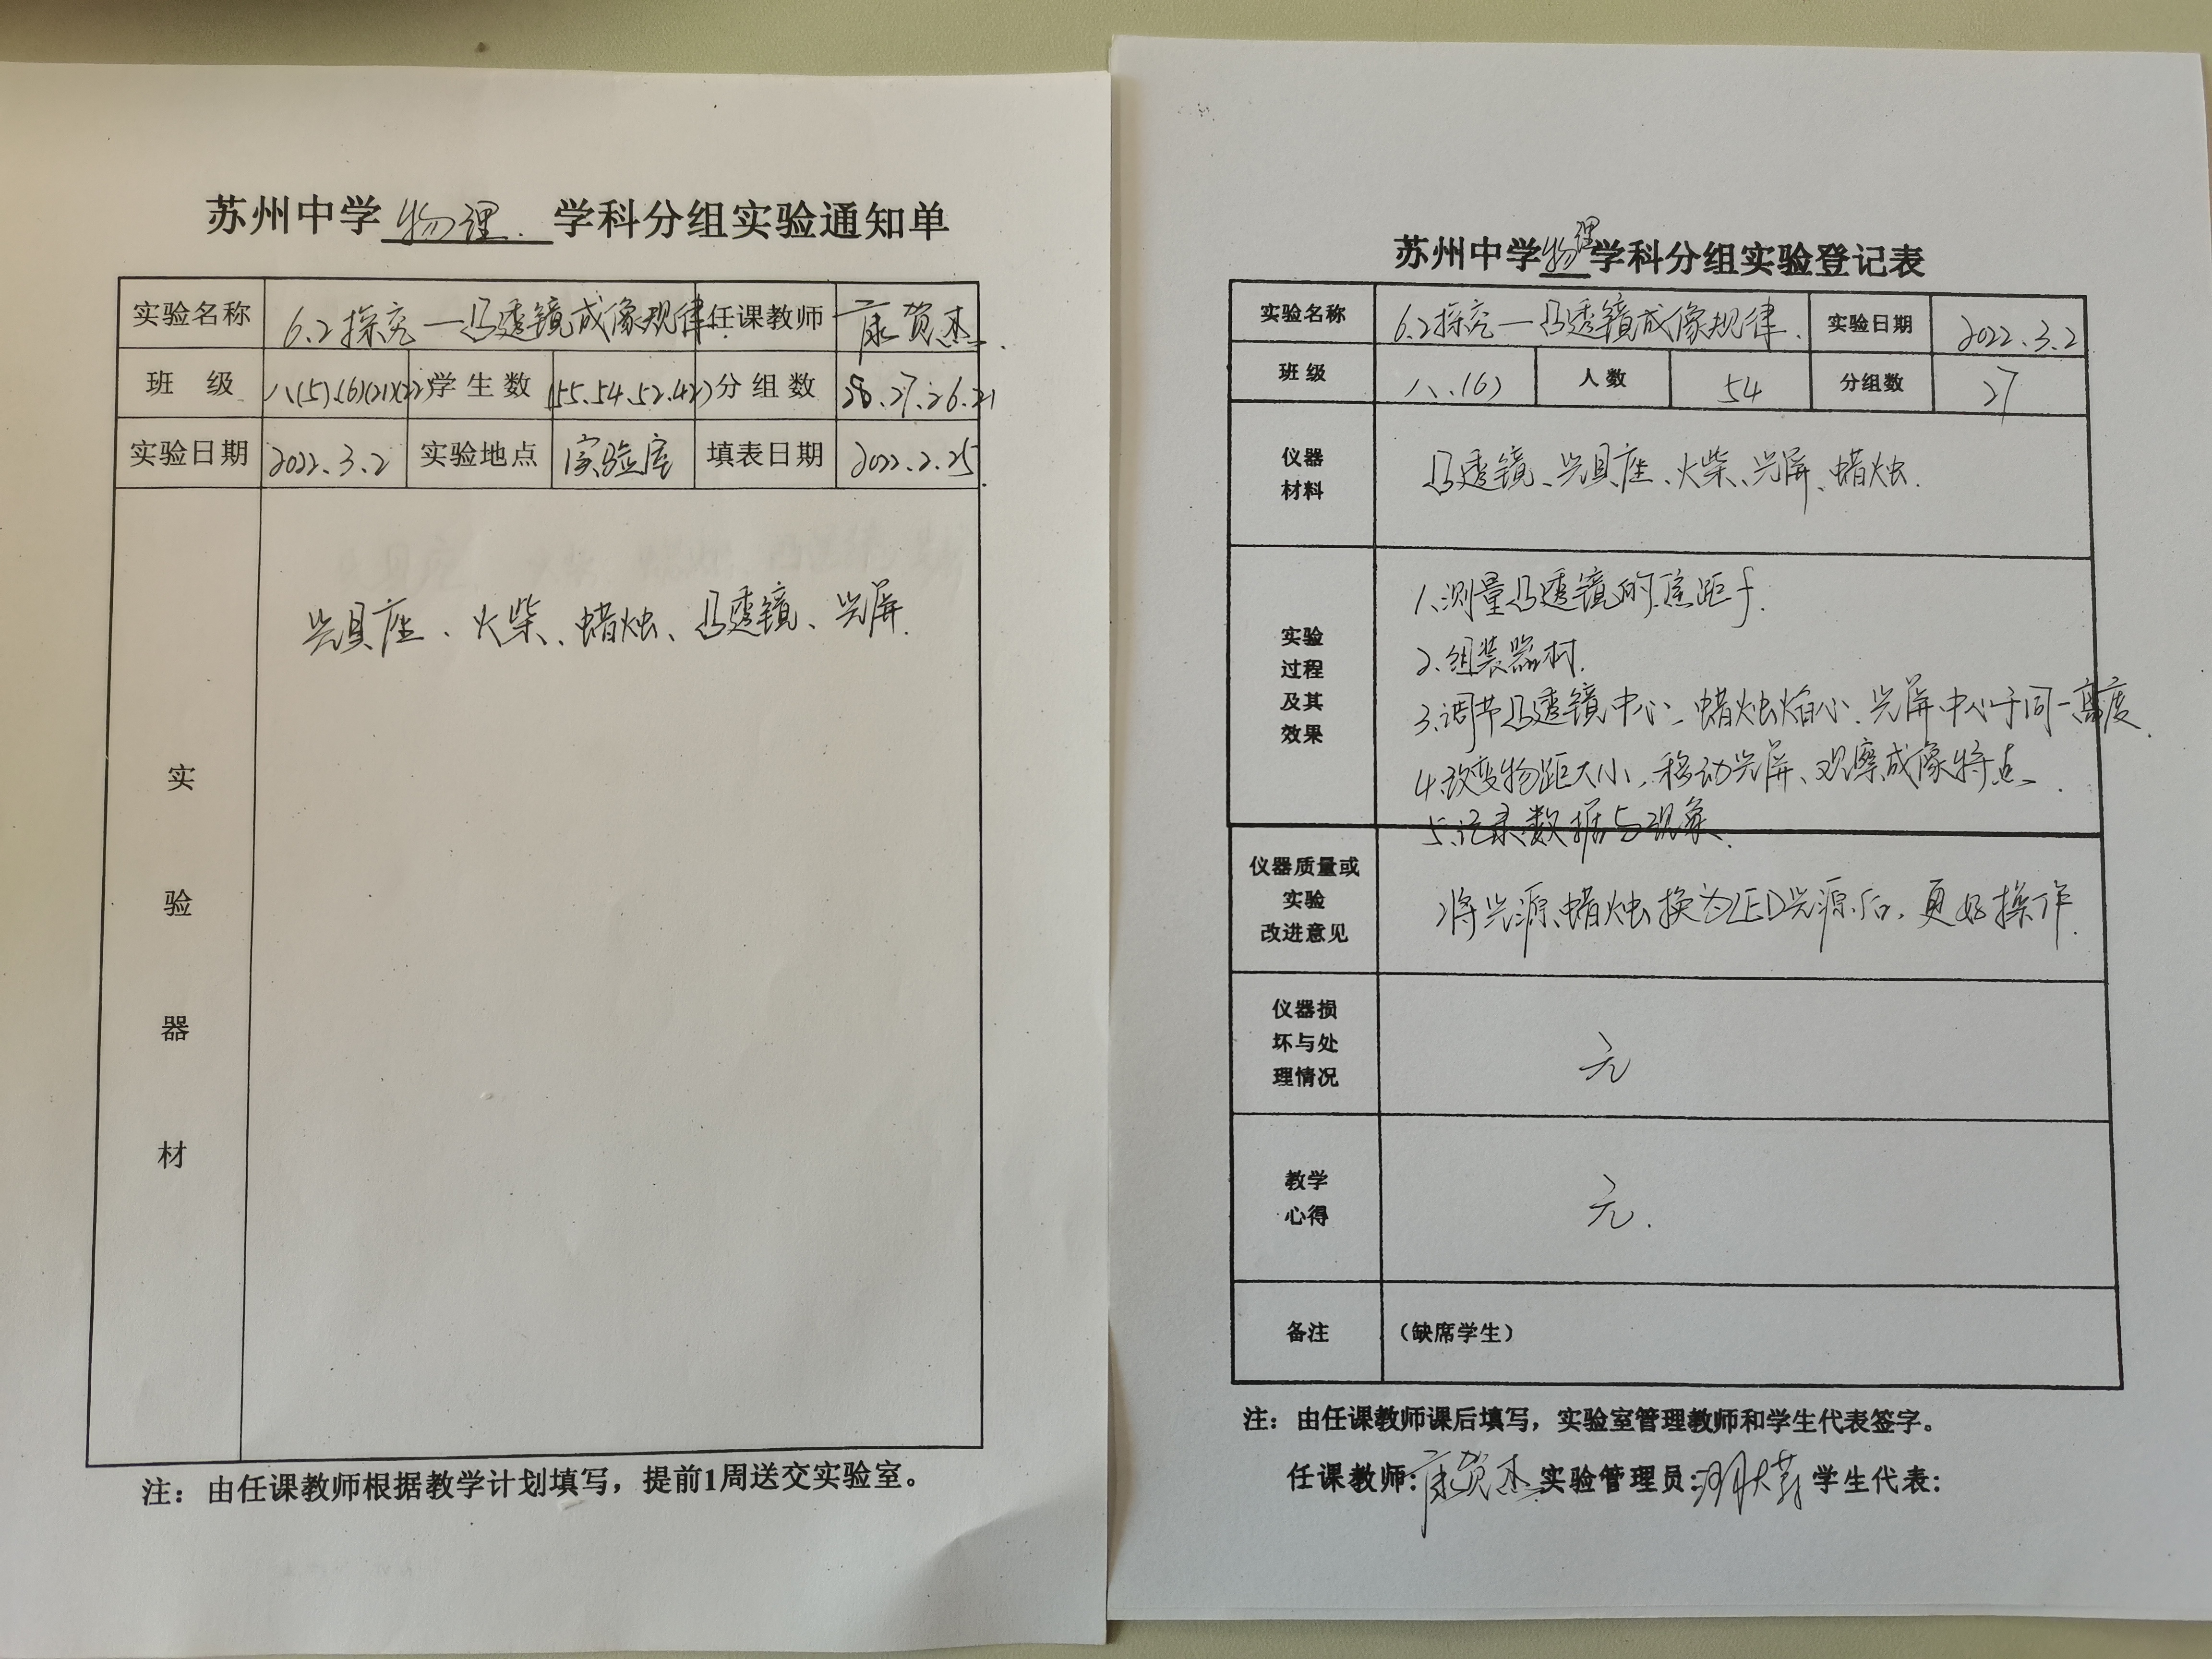 苏州中学物理学科分组实验通知单
实验名称 6.2探究—凸透镜成像规律 任课教师 康贺杰
班 级 八(5)、(6)(21)(22) 学生数 (55.54.52.42) 分组数 28.27.26.21
实验日期 2022.3.2 实验地点 实验室 填表日期 2022.2.25
实验器材
光具座、火柴、蜡烛、凸透镜、光屏.
注：由任课教师根据教学计划填写，提前1周送交实验室。
苏州中学物理学科分组实验登记表
实验名称 6.2探究—凸透镜成像规律. 实验日期 2022.3.2
班级 八、(6) 人数 54 分组数 27
仪器
材料
凸透镜、光具座、火柴、光屏、蜡烛.
实验
过程
及其
效果
1、测量凸透镜的焦距f.
2、组装器材.
3、调节凸透镜中心、蜡烛焰心、光屏中心于同一高度.
4、改变物距大小，移动光屏、观察成像特点.
5、记录数据与现象.
仪器质量或
实验
改进意见
将光源蜡烛换为LED光源后，更好操作.
仪器损
坏与处
理情况
无
教学
心得
无.
备注 （缺席学生）
注：由任课教师课后填写，实验室管理教师和学生代表签字。
任课教师：康贺杰 实验管理员： 学生代表：